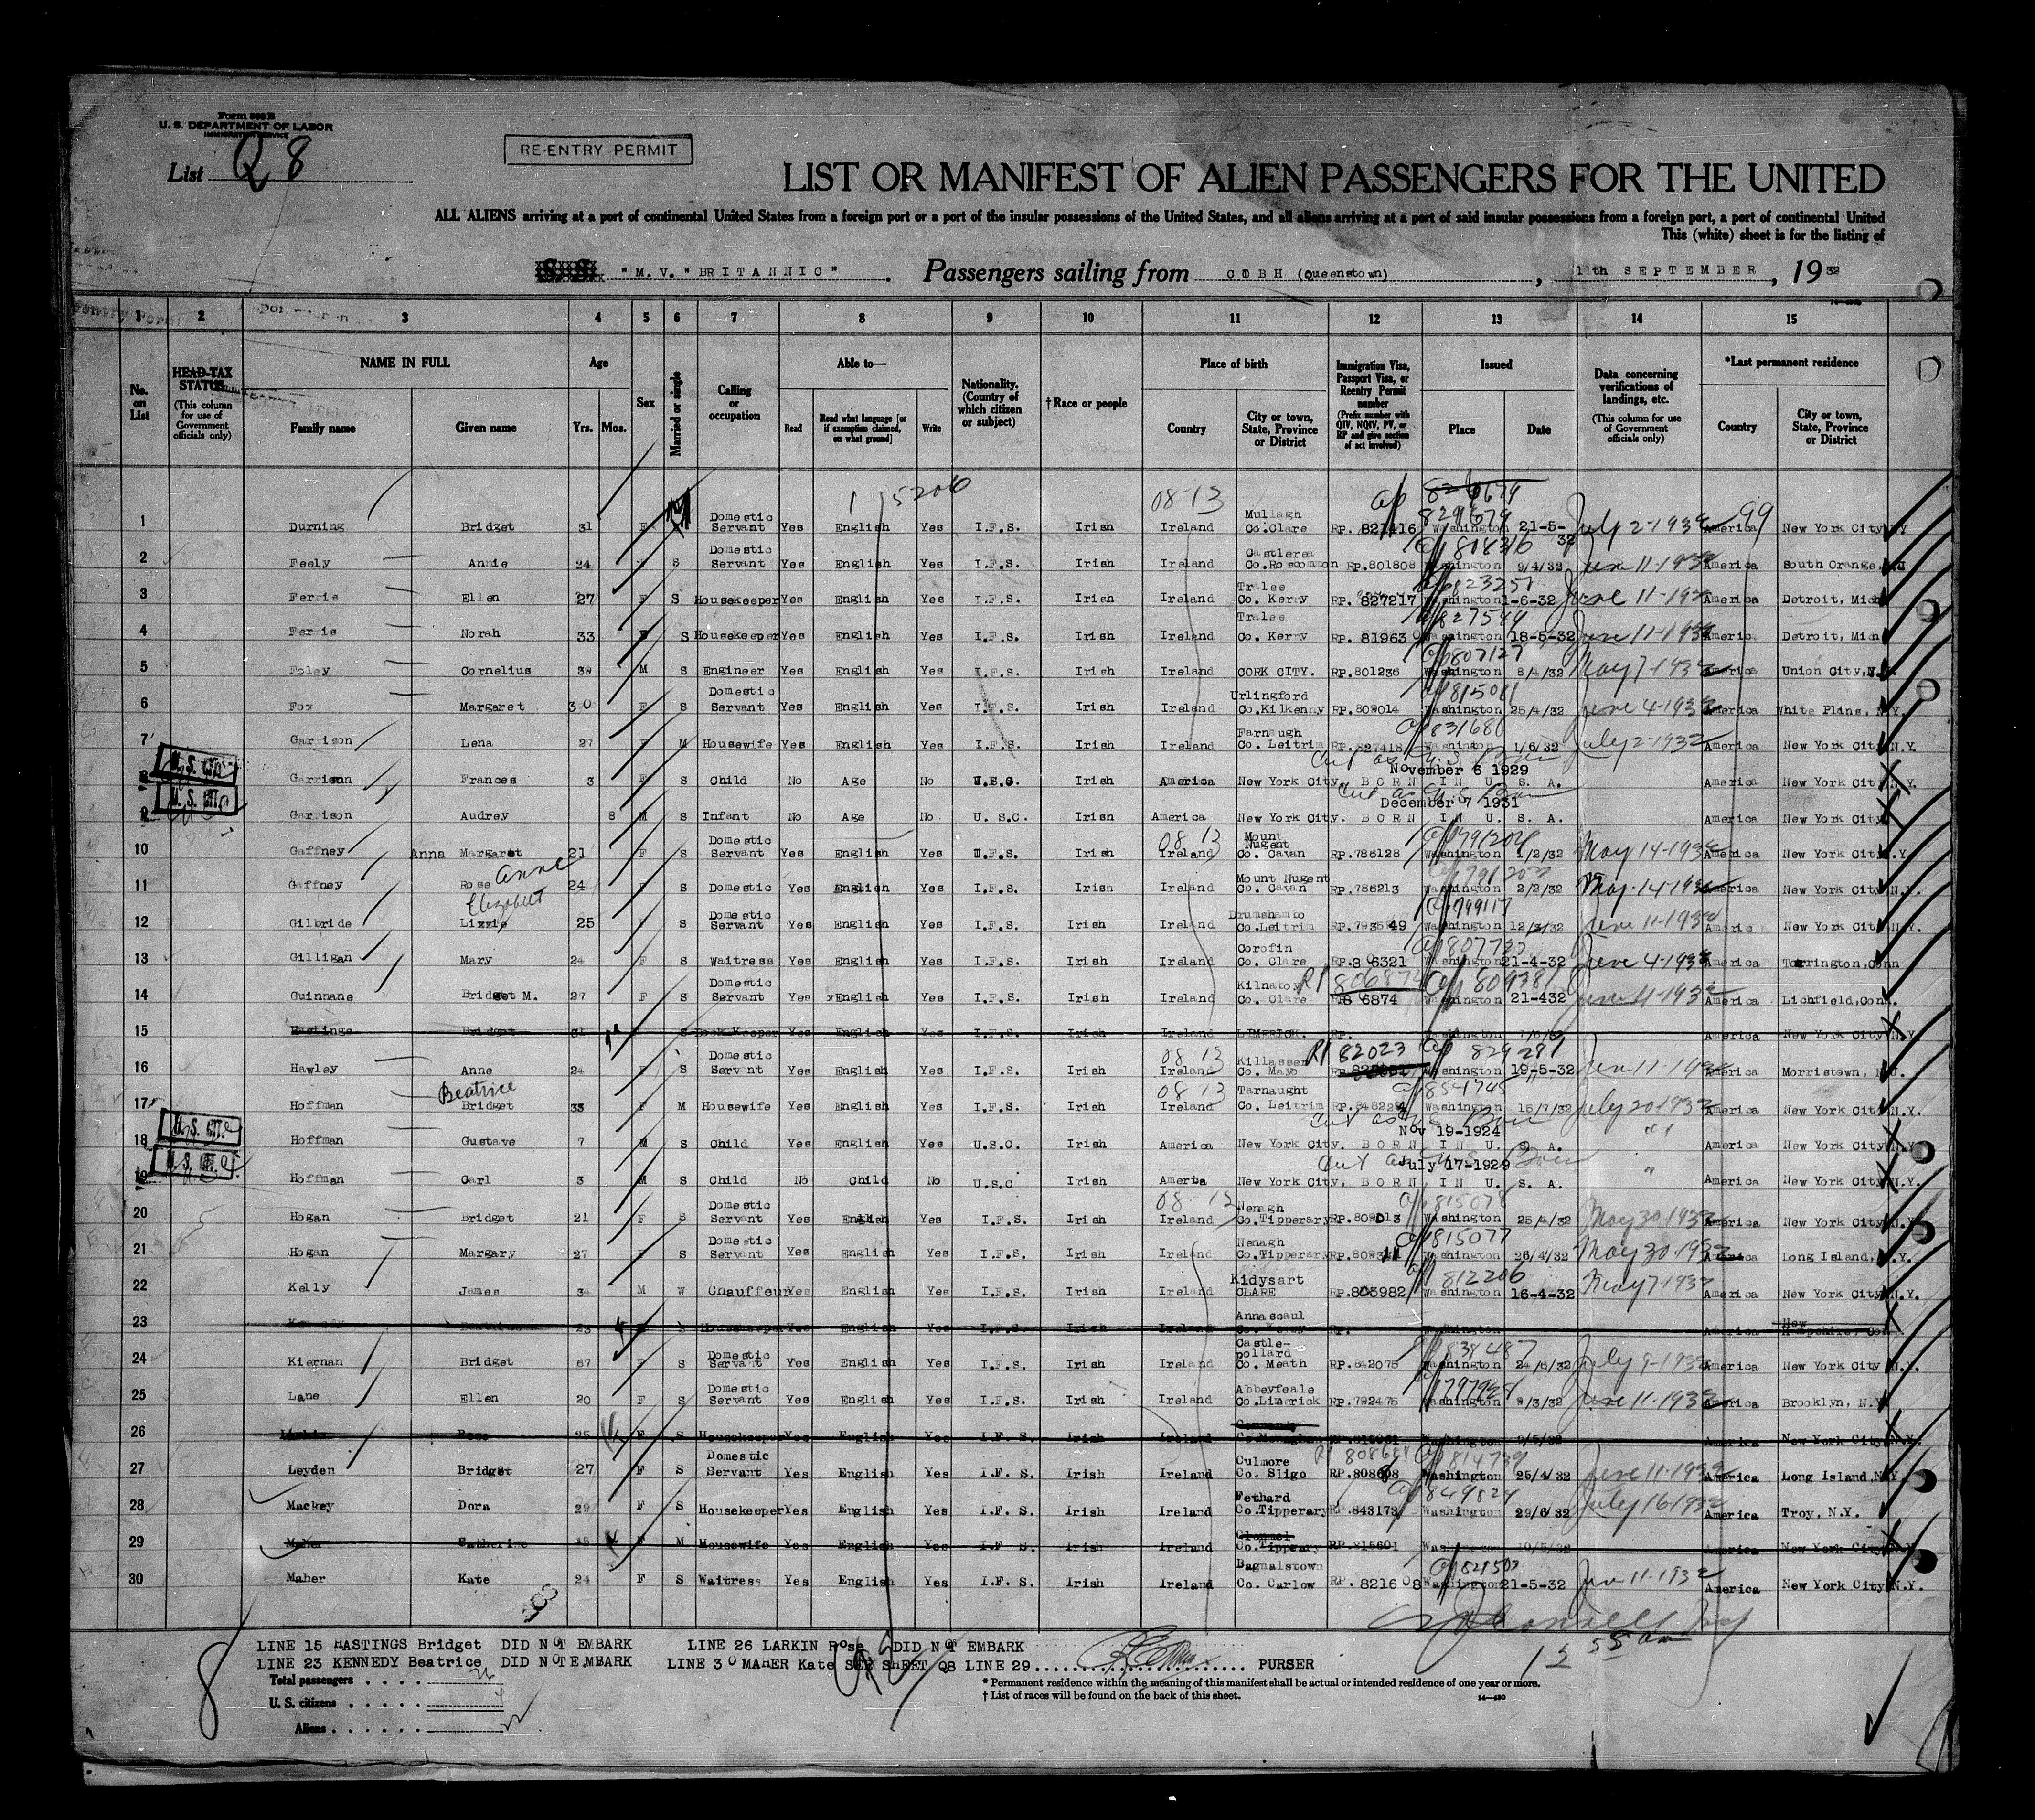 Form 500 B
U. S. DEPARTMENT OF LABOR
IMMIGRATION SERVICE
List Q 8
RE-ENTRY PERMIT
LIST OR MANIFEST OF ALIEN PASSENGERS FOR THE UNITED
ALL ALIENS arriving at a port of continental United States from a foreign port or a port of the insular possessions of the United States, and all aliens arriving at a port of said insular possessions from a foreign port, a port of continental United
This (white) sheet is for the listing of
"M.V." BRITANNIC" . Passengers sailing from COBH (Queenstown) , 11th SEPTEMBER , 1932
1 2 3 4 5 6 7 8 9 10 11 12 13 14 15
No. on List
HEAD-TAX STATUS (This column for use of Government officials only)
NAME IN FULL Family name Given name
Age Yrs. Mos.
Sex
Married or single
Calling or occupation
Able to— Read Read what language [or if exemption claimed, on what ground] Write
Nationality. (Country of which citizen or subject)
†Race or people
Place of birth Country City or town, State, Province or District
Immigration Visa, Passport Visa, or Reentry Permit number (Prefix number with QIV, NQIV, PV, or RP and give section of act involved)
Issued Place Date
Data concerning verifications of landings, etc. (This column for use of Government officials only)
*Last permanent residence Country City or town, State, Province or District
1 Durning Bridget 31 F Domestic Servant Yes English Yes I.F.S. Irish Ireland Mullagh Co.Clare RP. 827416 829679 Washington 21-5-32 July 2-1932 America New York City N.Y
2 Feely Annie 24 S Domestic Servant Yes English Yes I.F.S. Irish Ireland Castlerea Co.Roscommon RP.801808 818316 Washington 9/4/32 June 11-1932 America South Orange, N.J
3 Ferris Ellen 27 F S Housekeeper Yes English Yes I.F.S. Irish Ireland Tralee Co. Kerry RP. 827217 Washington 1-6-32 June 11-1932 America Detroit, Mich
4 Ferris Norah 33 F S Housekeeper Yes English Yes I.F.S. Irish Ireland Tralee Co. Kerry RP. 81963 827544 Washington 18-5-32 June 11-1932 America Detroit, Mich
5 Foley Cornelius M S Engineer Yes English Yes I.F.S. Irish Ireland CORK CITY. RP.801236 807127 Washington 8/4/32 May 7-1932 America Union City, N.J.
6 Fox Margaret 30 F S Domestic Servant Yes English Yes I.F.S. Irish Ireland Urlingford Co.Kilkenny RP.809014 815081 Washington 25/4/32 June 4-1932 America White Plins, N.Y.
7 Garrison Lena 27 F M Housewife Yes English Yes I.F.S. Irish Ireland Farnaugh Co. Leitrim RP.827418 831686 Washington 1/6/32 July 2-1932 America New York City N.Y.
U. S. CIT.
8 Garrison Frances 3 F S Child No Age No U.S.C. Irish America New York City, November 6 1929 BORN IN U. S. A. America New York City N.Y.
U. S. CIT.
9 Garrison Audrey 8 M S Infant No Age No U. S.C. Irish America New York City. December 7 1931 BORN IN U. S. A. America New York City
10 Gaffney Anna Margaret 21 F S Domestic Servant Yes English Yes I.F.S. Irish Ireland Mount Nugent Co. Cavan RP.786128 791204 Washington 1/2/32 May 14-1932 America New York City N.Y
11 Gaffney Rose Anne 24 F S Domestic Yes English Yes I.F.S. Irish Ireland Mount Nugent Co. Cavan RP.786213 Washington 2/2/32 May-14-1932 America New York City N.Y.
12 Gilbride Lizzie Elizabeth 25 F S Domestic Servant Yes English Yes I.F.S. Irish Ireland Drumshambo Co.Leitrim RP.793549 799117 Washington 12/3/32 June 11-1932 America New York City N.Y.
13 Gilligan Mary 24 F S Waitress Yes English Yes I.F.S. Irish Ireland Corofin Co. Clare RP.806321 Washington 21-4-32 June 4-1932 America Torrington, Conn
14 Guinnane Bridget M. 27 F S Domestic Servant Yes English Yes I.F.S. Irish Ireland Kilnatoy Co. Clare RP 806874 809781 Washington 21-432 June 11-1932 America Lichfield, Conn.
15 Hastings Bridget 31 S Book Keeper Yes English Yes I.F.S. Irish Ireland LIMERICK. RP. Washington America New York City N.Y.
16 Hawley Anne 24 F S Domestic Servant Yes English Yes I.F.S. Irish Ireland Killasser Co. Mayo RP 82023 829291 Washington 19-5-32 June 11-1932 America Morristown, N.J.
17 Hoffman Bridget Beatrice 33 F M Housewife Yes English Yes I.F.S. Irish Ireland Tarnaught Co. Leitrim RP.848224 854745 Washington 15/7/32 July 20 1932 America New York City N.Y.
U. S. CIT.
18 Hoffman Gustave 7 M S Child Yes English Yes U.S.C. Irish America New York City, Nov 19-1924 BORN IN U. S. A. " America New York City N.Y.
U. S. CIT.
19 Hoffman Carl 3 M S Child No Child No U.S.C Irish Amerta New York City, July 17-1929 BORN IN U. S. A. " America New York City N.Y.
20 Hogan Bridget 21 F S Domestic Servant Yes English Yes I.F.S. Irish Ireland Nenagh Co.Tipperary RP.809013 815078 Washington 25/4/32 May 30 1932 America New York City N.Y.
21 Hogan Margary 27 F S Domestic Servant Yes English Yes I.F.S. Irish Ireland Nenagh Co.Tipperary 815077 Washington 26/4/32 May 30-1932 America Long Island, N.Y.
22 Kelly James 34 M W Chauffeur Yes English Yes I.F.S. Irish Ireland Kidysart CLARE RP.803982 812206 Washington 16-4-32 May 7 1932 America New York City N.Y.
23 Kennedy Beatrice 23 S Housekeeper Yes English Yes I.F.S. Irish Ireland Annascaul Co. Kerry RP. Washington America New Hampshire, Con
24 Kiernan Bridget 67 F S Domestic Servant Yes English Yes I.F.S. Irish Ireland Castle-pollard Co. Meath RP.842075 838487 Washington 24/6/32 July 9-1932 America New York City N.Y.
25 Lane Ellen 20 F S Domestic Servant Yes English Yes I.F.S. Irish Ireland Abbeyfeale Co.Limerick RP.792475 Washington 9/3/32 June 11-1932 America Brooklyn, N.Y
26 Larkin Rose 25 F S Housekeeper Yes English Yes I.F. S. Irish Ireland Co.Monaghan Washington America New York City N.Y.
27 Leyden Bridget 27 F S Domestic Servant Yes English Yes I.F. S. Irish Ireland Culmore Co. Sligo RP.808608 814739 Washington 25/4/32 June 11-1932 America Long Island, N.Y.
28 Mackey Dora 29 F S Housekeeper Yes English Yes I.F. S. Irish Ireland Fethard Co.Tipperary RP.843173 849824 Washington 29/6/32 July 16 1932 America Troy, N.Y.
29 Maher Catherine 35 F M Housewife Yes English Yes I.F S. Irish Ireland Clonmel Co.Tipprary RP.815601 Washington 10/5/32 America New York City N.Y.
30 Maher Kate 24 F S Waitress Yes English Yes I.F. S. Irish Ireland Bagnalstown Co. Carlow RP. 821608 Washington 21-5-32 June 11-1932 America New York City N.Y.
LINE 15 HASTINGS Bridget DID NOT EMBARK LINE 26 LARKIN Rose DID NOT EMBARK
LINE 23 KENNEDY Beatrice DID NOT EMBARK LINE 30 MAHER Kate SEE SHEET Q8 LINE 29 PURSER
Total passengers 26
U. S. citizens 4
Aliens 22
* Permanent residence within the meaning of this manifest shall be actual or intended residence of one year or more.
† List of races will be found on the back of this sheet.
14—430